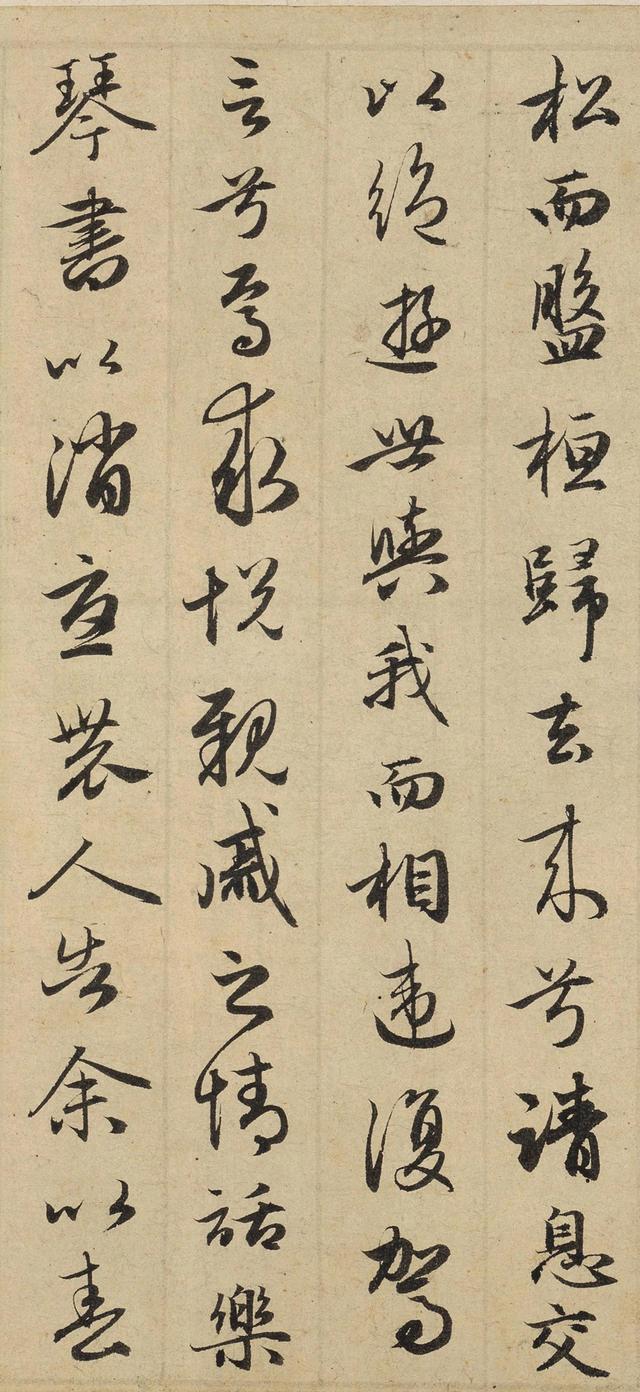 松而盤桓歸去来兮請息交
以絶遊世與我而相違復駕
言兮焉求悅親戚之情話樂
琴書以消憂農人告余以春